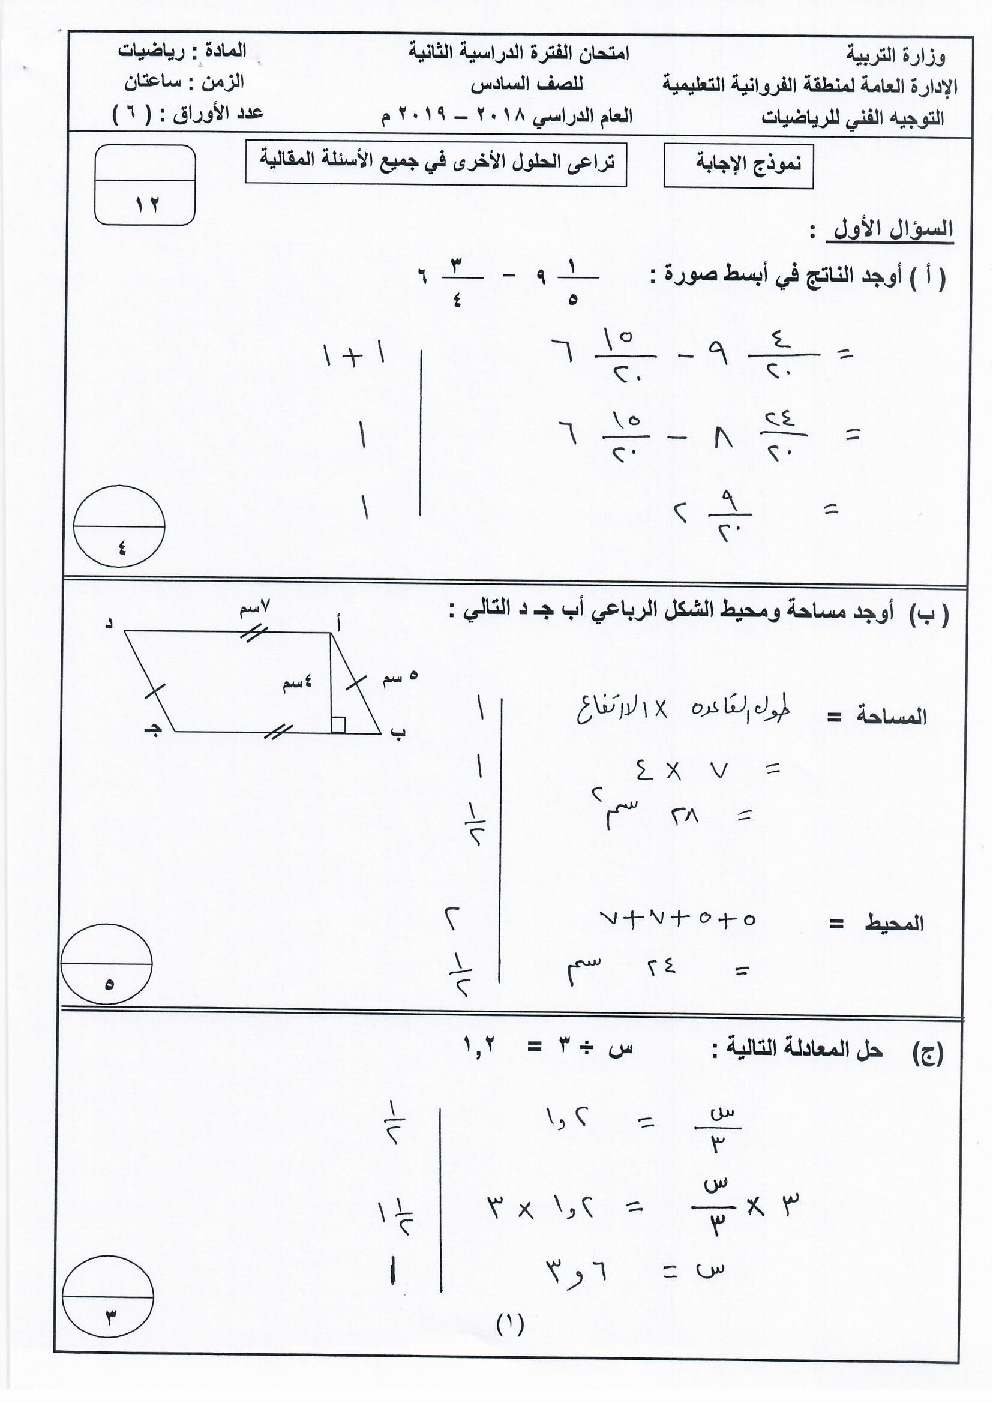 وزارة التربية
الإدارة العامة لمنطقة الفروانية التعليمية
التوجيه الفني للرياضيات
امتحان الفترة الدراسية الثانية
للصف السادس
العام الدراسي ٢٠١٨ – ٢٠١٩ م
المادة : رياضيات
الزمن : ساعتان
عدد الأوراق : ( ٦ )
نموذج الإجابة
تراعى الحلول الأخرى في جميع الأسئلة المقالية
١٢
السؤال الأول :
( أ ) أوجد الناتج في أبسط صورة : ٩ ١/٥ − ٦ ٣/٤
= ٩ ٤/٢٠ − ٦ ١٥/٢٠ ١ + ١
= ٨ ٢٤/٢٠ − ٦ ١٥/٢٠ ١
= ٢ ٩/٢٠ ١
٤
( ب ) أوجد مساحة ومحيط الشكل الرباعي أب جـ د التالي :
د ٧سم أ
٥ سم
٤سم
جـ ب
المساحة = طول القاعده × الارتفاع ١
= ٧ × ٤ ١
= ٢٨ سم٢ ١/٢
المحيط = ٥+٥+٧+٧ ٢
= ٢٤ سم ١/٢
٥
(ج) حل المعادلة التالية : س ÷ ٣ = ١,٢
س/٣ = ١,٢ ١/٢
٣ × س/٣ = ١,٢ × ٣ ١ ١/٢
س = ٣,٦ ١
٣
(١)